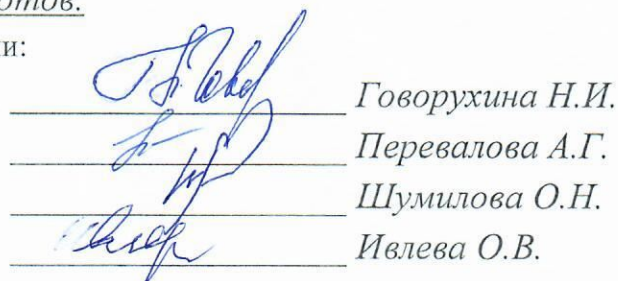 отов.
ии:
Говорухина Н.И.
Перевалова А.Г.
Шумилова О.Н.
Ивлева О.В.